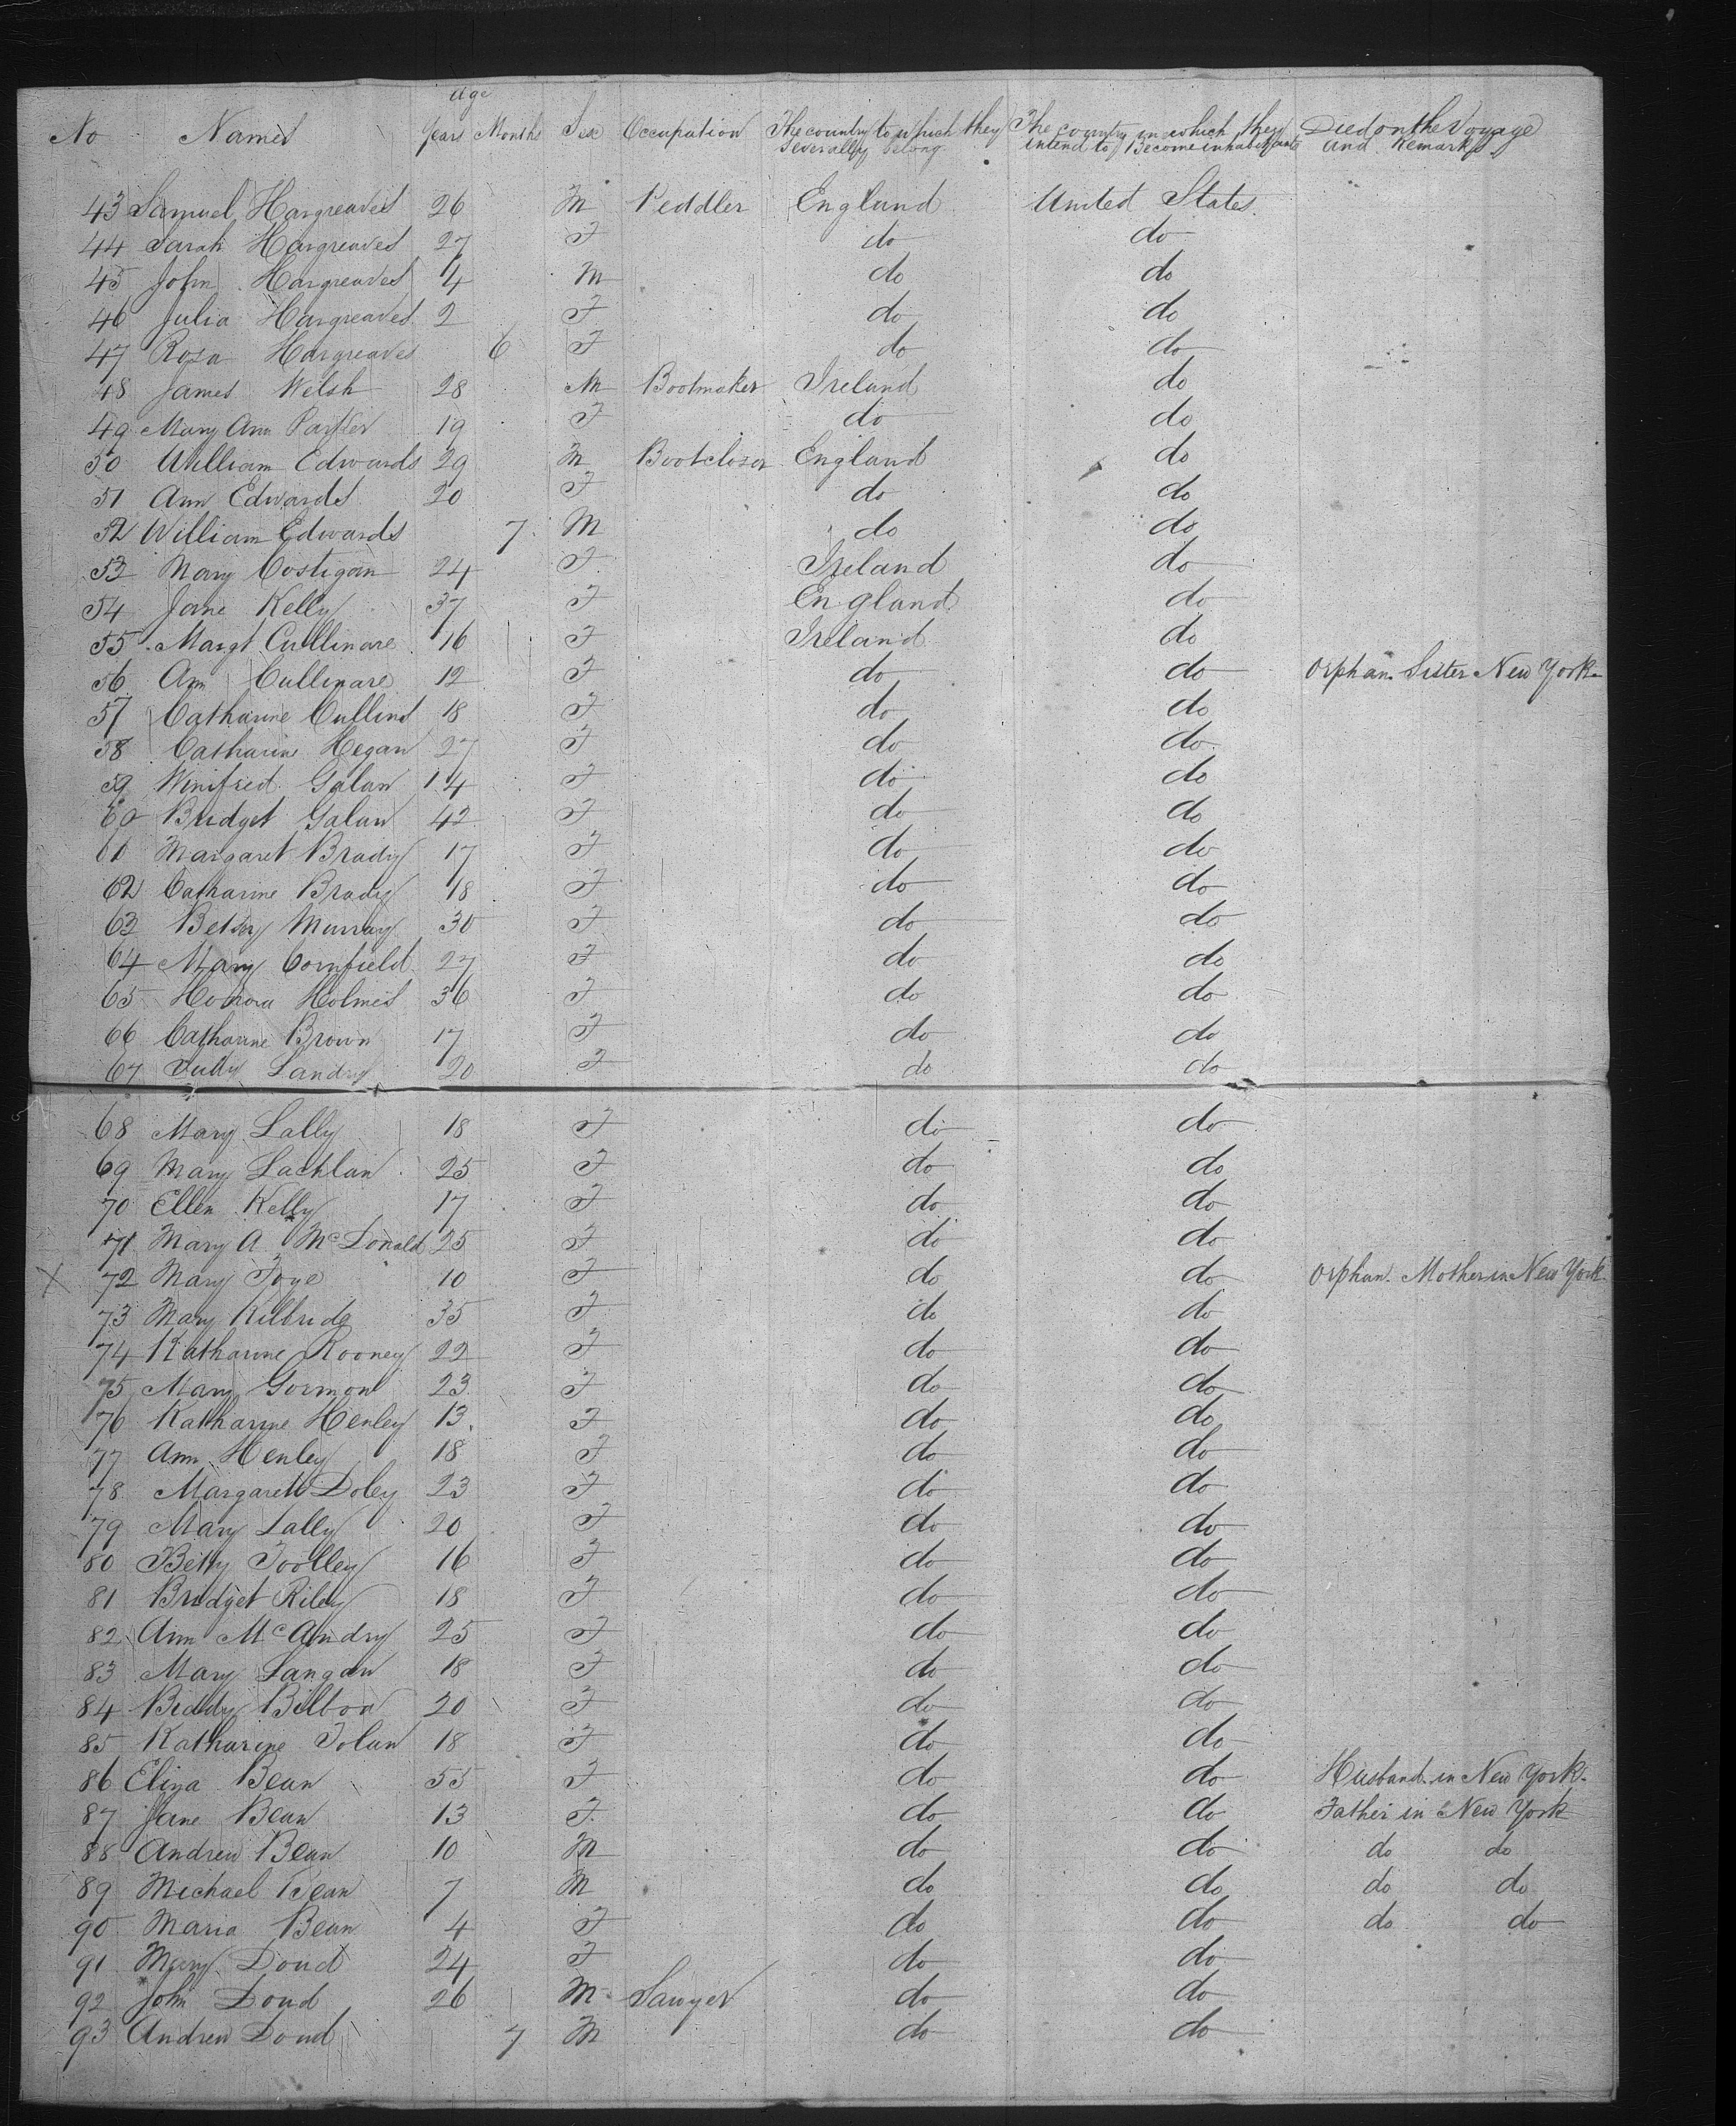 Age
No Names years Months Sex Occupation The country to which they severally belong The country in which they intend to Become inhabitants Died on the Voyage and Remarks
43 Samuel Hargreaves 26 M Peddler England United States
44 Sarah Hargreaves 27 F do do
45 John Hargreaves 4 M do do
46 Julia Hargreaves 2 F do do
47 Rosa Hargreaves 6 F do do
48 James Welsh 28 M Bootmaker Ireland do
49 Mary Ann 19 F do do
50 William Edwards 29 M Bootcloser England do
51 Ann Edwards 20 F do do
52 William Edwards 7 M do do
53 Mary Costigan 24 F Ireland do
54 Jane Kelly 37 F England do
55 Margt Cullinare 16 F Ireland do
56 Ann Cullinare 12 F do do Orphan. Sister New York
57 Catharine Cullins 18 F do do
58 Catharine Hegan 27 F do do
59 Winifred Galan 14 F do do
60 Bridget Galan 42 F do do
61 Margaret Brady 17 F do do
62 Catharine Brady 18 F do do
63 Betsy Murray 30 F do do
64 Mary Cornfield 27 F do do
65 Honora Holmes 36 F do do
66 Catharine Brown 17 F do do
67 Landry 20 F do do
68 Mary Lally 18 F do do
69 Mary Lachlan 25 F do do
70 Ellen Kelly 17 F do do
71 Mary A McDonald 25 F do do
X 72 Mary Foye 10 F do do Orphan. Mother in New York
73 Mary Kilbride 35 F do do
74 Katharine Rooney 22 F do do
75 Mary Gormon 23 F do do
76 Katharine Henley 13 F do do
77 Ann Henley 18 F do do
78 Margarett Doley 23 F do do
79 Mary Lally 20 F do do
80 Betty Toolley 16 F do do
81 Bridget Riley 18 F do do
82 Ann McAndry 25 F do do
83 Mary Langan 18 F do do
84 Biddy Bilton 20 F do do
85 Katharine Tolan 18 F do do
86 Eliza Bean 55 F do do Husband in New York
87 Jane Bean 13 F do do Father in New York
88 Andrew Bean 10 M do do do do
89 Michael Bean 7 M do do do do
90 Maria Bean 4 F do do do do
91 Mary Doud 24 F do do
92 John Doud 26 M Sawyer do do
93 Andrew Doud 7 M do do